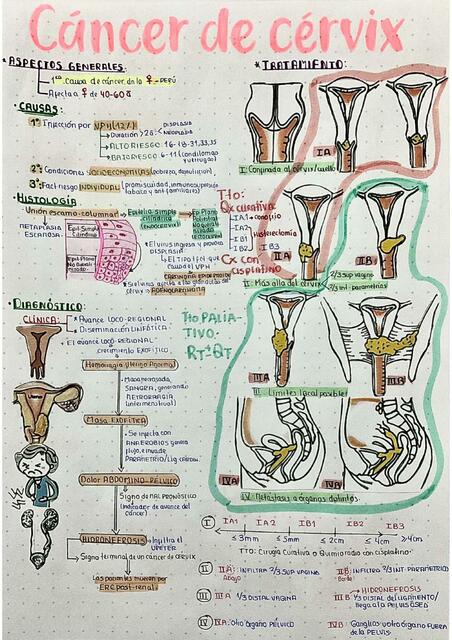 Cáncer de cérvix
ASPECTOS GENERALES:
1era Causa de cáncer de la ♀ - PERÚ
Afecta a ♀ de 40-60a
CAUSAS:
1º Infección por VPH
Duración > 2a
DISPLASIA
NEOPLASIA
ALTO RIESGO: 16-18-31,33,35
BAJO RIESGO: 6-11 (condiloma
2º Condiciones SOCIOECONÓMICAS (pobreza,
3º Fact riesgo INDIVIDUAL (promiscuidad,
HISTOLOGÍA
Unión escamo-columnar
METAPLASIA
ESCAMOSA.
Epitelio simple
cilíndrico
(endocérvix)
Ep Plano
El virus ingresa y produce
DISPLASIA
causa el VPH
CARCINOMA EPIDERMOIDE
ADENOCARCINOMA
DIAGNÓSTICO
CLÍNICA:
Avance LOCO-REGIONAL
Diseminación LINFÁTICA
El avance LOCO-REGIONAL
crecimiento EXOFÍTICO
Hemorragia Uterina Anormal
SANGRA, generando
METRORRAGIA
(intermenstrual)
Masa EXOFÍTICA
Se infecta con
ANAEROBIOS genera
flujo, e invade
PARAMETRIO/Lig cardin.
Dolor ABDOMINO-PÉLVICO
Signo de MAL PRONÓSTICO
(Indicador de avance del
cáncer)
HIDRONEFROSIS
Infiltra el
URÉTER
Signo terminal de un cáncer de cérvix
Las pacientes mueren por
ERC post-renal
Uterus
TRATAMIENTO:
IA
IB
I: Confinado al cérvix/cuello
Tto:
Qx curativa
IA1
IA2
IB1
IB2
IB3
conos
Histerectomía
Qx con
cisplatino
IIA
IIB
II: Más allá del cérvix
2/3 sup vagina
2/3 int. parametrios
Tto PALIA-
TIVO.
RT+QT
IIIA
IIIB
III: Límites local posible
IVA
IVA
IV: Metástasis a órganos distintos.
I
IA1 IA2 IB1 IB2 IB3
≤3mm ≤5mm ≤2cm ≤4cm >4cm
TTO: Cirugía Curativa o Quimioradio con cisplatino.
II
IIA: INFILTRA 2/3 SUP VAGINA
Abajo
IIB: INFILTRA 2/3 INT. PARAMETRIO
Borde
III
IIIA 1/3 DISTAL VAGINA
HIDRONEFROSIS
IIIB 1/3 DISTAL del LIGAMENTO/
llega a la PELVIS ÓSEA
IV
IVA: otro órgano PÉLVICO
IVB: Ganglios u otro órgano FUERA
de la PELVIS.